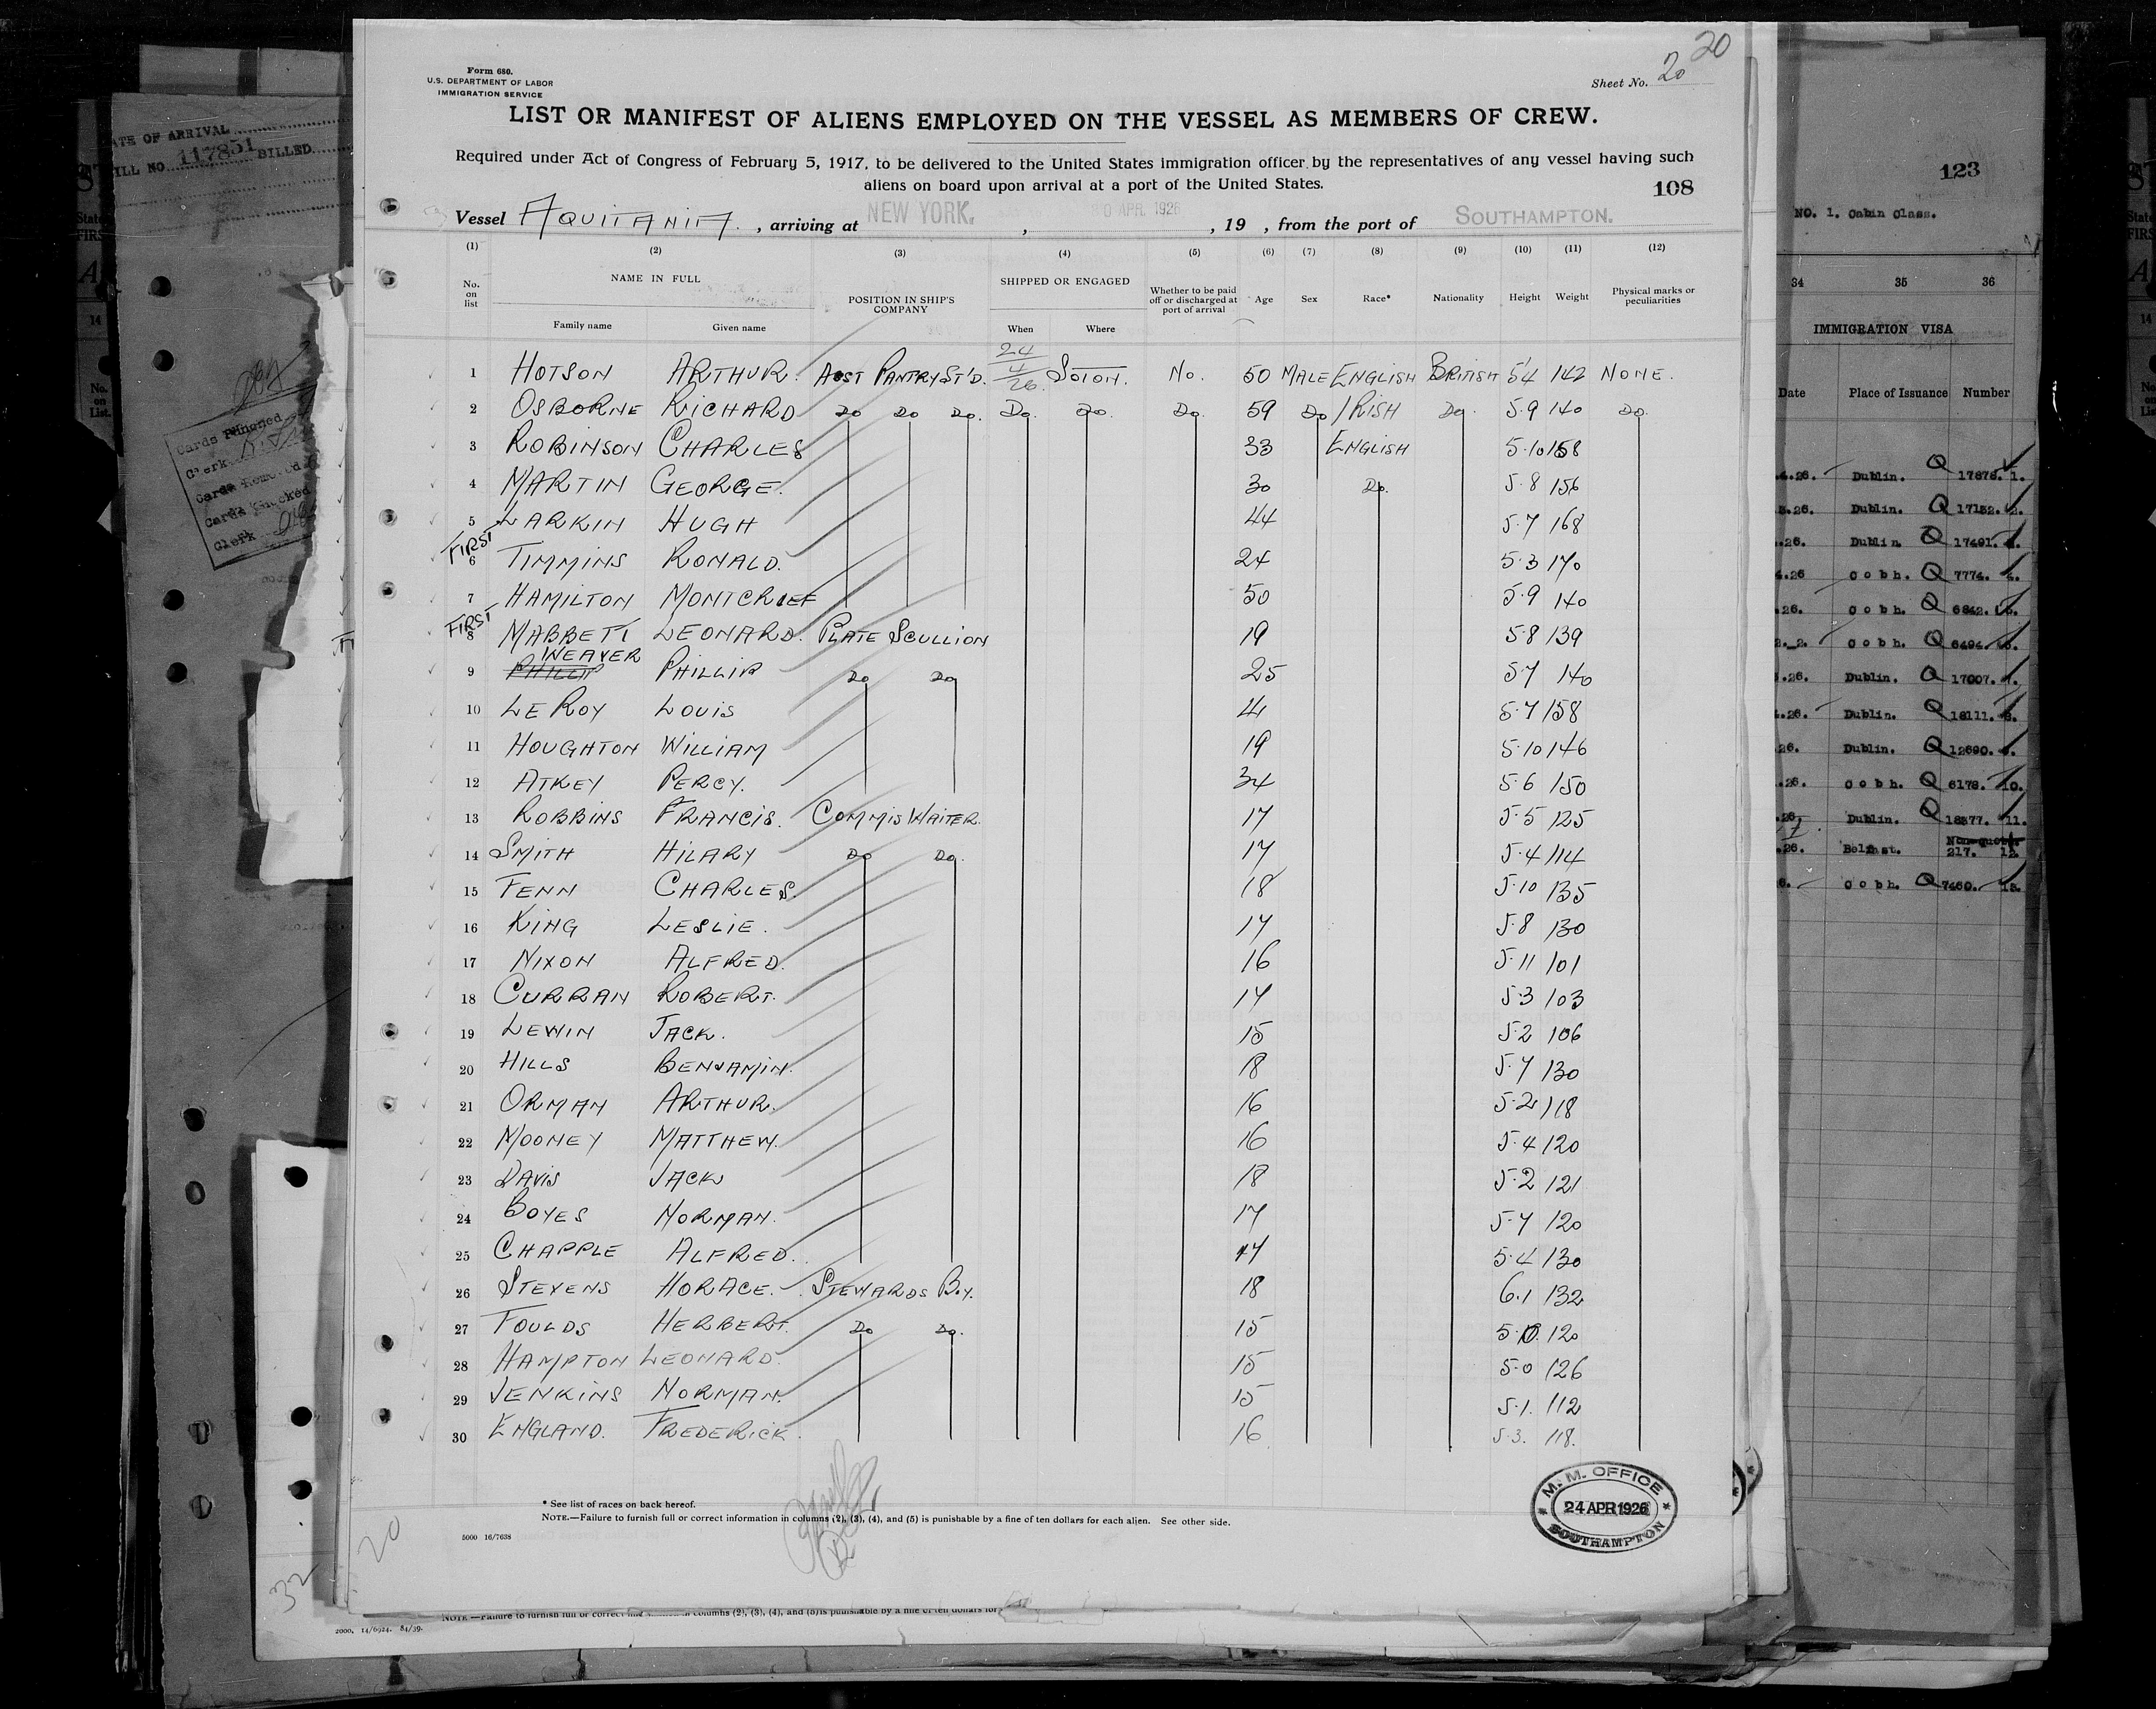 20
Form 680.
U.S. DEPARTMENT OF LABOR
IMMIGRATION SERVICE
Sheet No. 20
LIST OR MANIFEST OF ALIENS EMPLOYED ON THE VESSEL AS MEMBERS OF CREW.
Required under Act of Congress of February 5, 1917, to be delivered to the United States immigration officer by the representatives of any vessel having such
aliens on board upon arrival at a port of the United States.
108
Vessel AQUITANIA. , arriving at NEW YORK. , APR. 1926 , 19 , from the port of SOUTHAMPTON.
(1) (2) (3) (4) (5) (6) (7) (8) (9) (10) (11) (12)
No. on list NAME IN FULL Family name Given name POSITION IN SHIP'S COMPANY SHIPPED OR ENGAGED When Where Whether to be paid off or discharged at port of arrival Age Sex Race* Nationality Height Weight Physical marks or peculiarities
1 HOTSON ARTHUR. ASST PANTRY ST'D. 24/4/26 SOTON. No. 50 MALE ENGLISH BRITISH 5'4 142 NONE.
2 OSBORNE RICHARD Do Do Do. Do. Do. Do. 59 Do IRISH Do. 5.9 140 Do.
3 ROBINSON CHARLES 33 ENGLISH 5.10 158
4 MARTIN GEORGE. 30 Do. 5.8 156
5 LARKIN HUGH 44 5.7 168
FIRST 6 TIMMINS RONALD. 24 5.3 170
7 HAMILTON MONTCRIEF 50 5.9 140
FIRST 8 MABBETT LEONARD. PLATE SCULLION 19 5.8 139
9 PHILLIP WEAVER PHILLIP Do Do 25 5.7 140
10 LE ROY LOUIS 41 5.7 158
11 HOUGHTON WILLIAM 19 5.10 146
12 ATKEY PERCY. 34 5.6 150
13 ROBBINS FRANCIS. COMMIS WAITER. 17 5.5 125
14 SMITH HILARY Do Do. 17 5.4 114
15 FENN CHARLES. 18 5.10 135
16 KING LESLIE. 17 5.8 130
17 NIXON ALFRED. 16 5.11 101
18 CURRAN ROBERT. 17 5.3 103
19 LEWIN JACK. 15 5.2 106
20 HILLS BENJAMIN. 18 5.7 130
21 ORMAN ARTHUR. 16 5.2 118
22 MOONEY MATTHEW. 16 5.4 120
23 DAVIS JACK 18 5.2 121
24 BOYES NORMAN. 17 5.7 120
25 CHAPPLE ALFRED. 17 5.4 130
26 STEVENS HORACE. STEWARDS BOY. 18 6.1 132
27 FOULDS HERBERT. Do Do. 15 5.0. 120
28 HAMPTON LEONARD. 15 5.0 126
29 JENKINS NORMAN. 15 5.1. 112
30 ENGLAND. FREDERICK. 16 5.3. 118.
* See list of races on back hereof.
NOTE.—Failure to furnish full or correct information in columns (2), (3), (4), and (5) is punishable by a fine of ten dollars for each alien. See other side.
5000 16/7638
M. M. OFFICE
24 APR 1926
SOUTHAMPTON
20
32
2000. 14/6924. 84/39.
DATE OF ARRIVAL
BILL NO. 117851 BILLED
Clerk
Clerk
123
NO. 1. Cabin Class.
34 35 36
IMMIGRATION VISA
Date Place of Issuance Number
.4.26. Dublin. Q 17878. 1.
.26. Dublin. Q 17152. 2.
.26. Dublin. Q 17491.
.4.26 Cobh. Q 7774. 4.
.26. Cobh. Q 6842.
Cobh. Q 6494.
.26. Dublin. Q 17007. 7.
.26. Dublin. Q 18111. 8.
26. Dublin. Q 12690.
.26. Cobh. Q 6178. 10.
.26 Dublin. Q 18377. 11.
.26. Belfast. Non-quota 217. 12.
6. Cobh. Q 7460. 13.